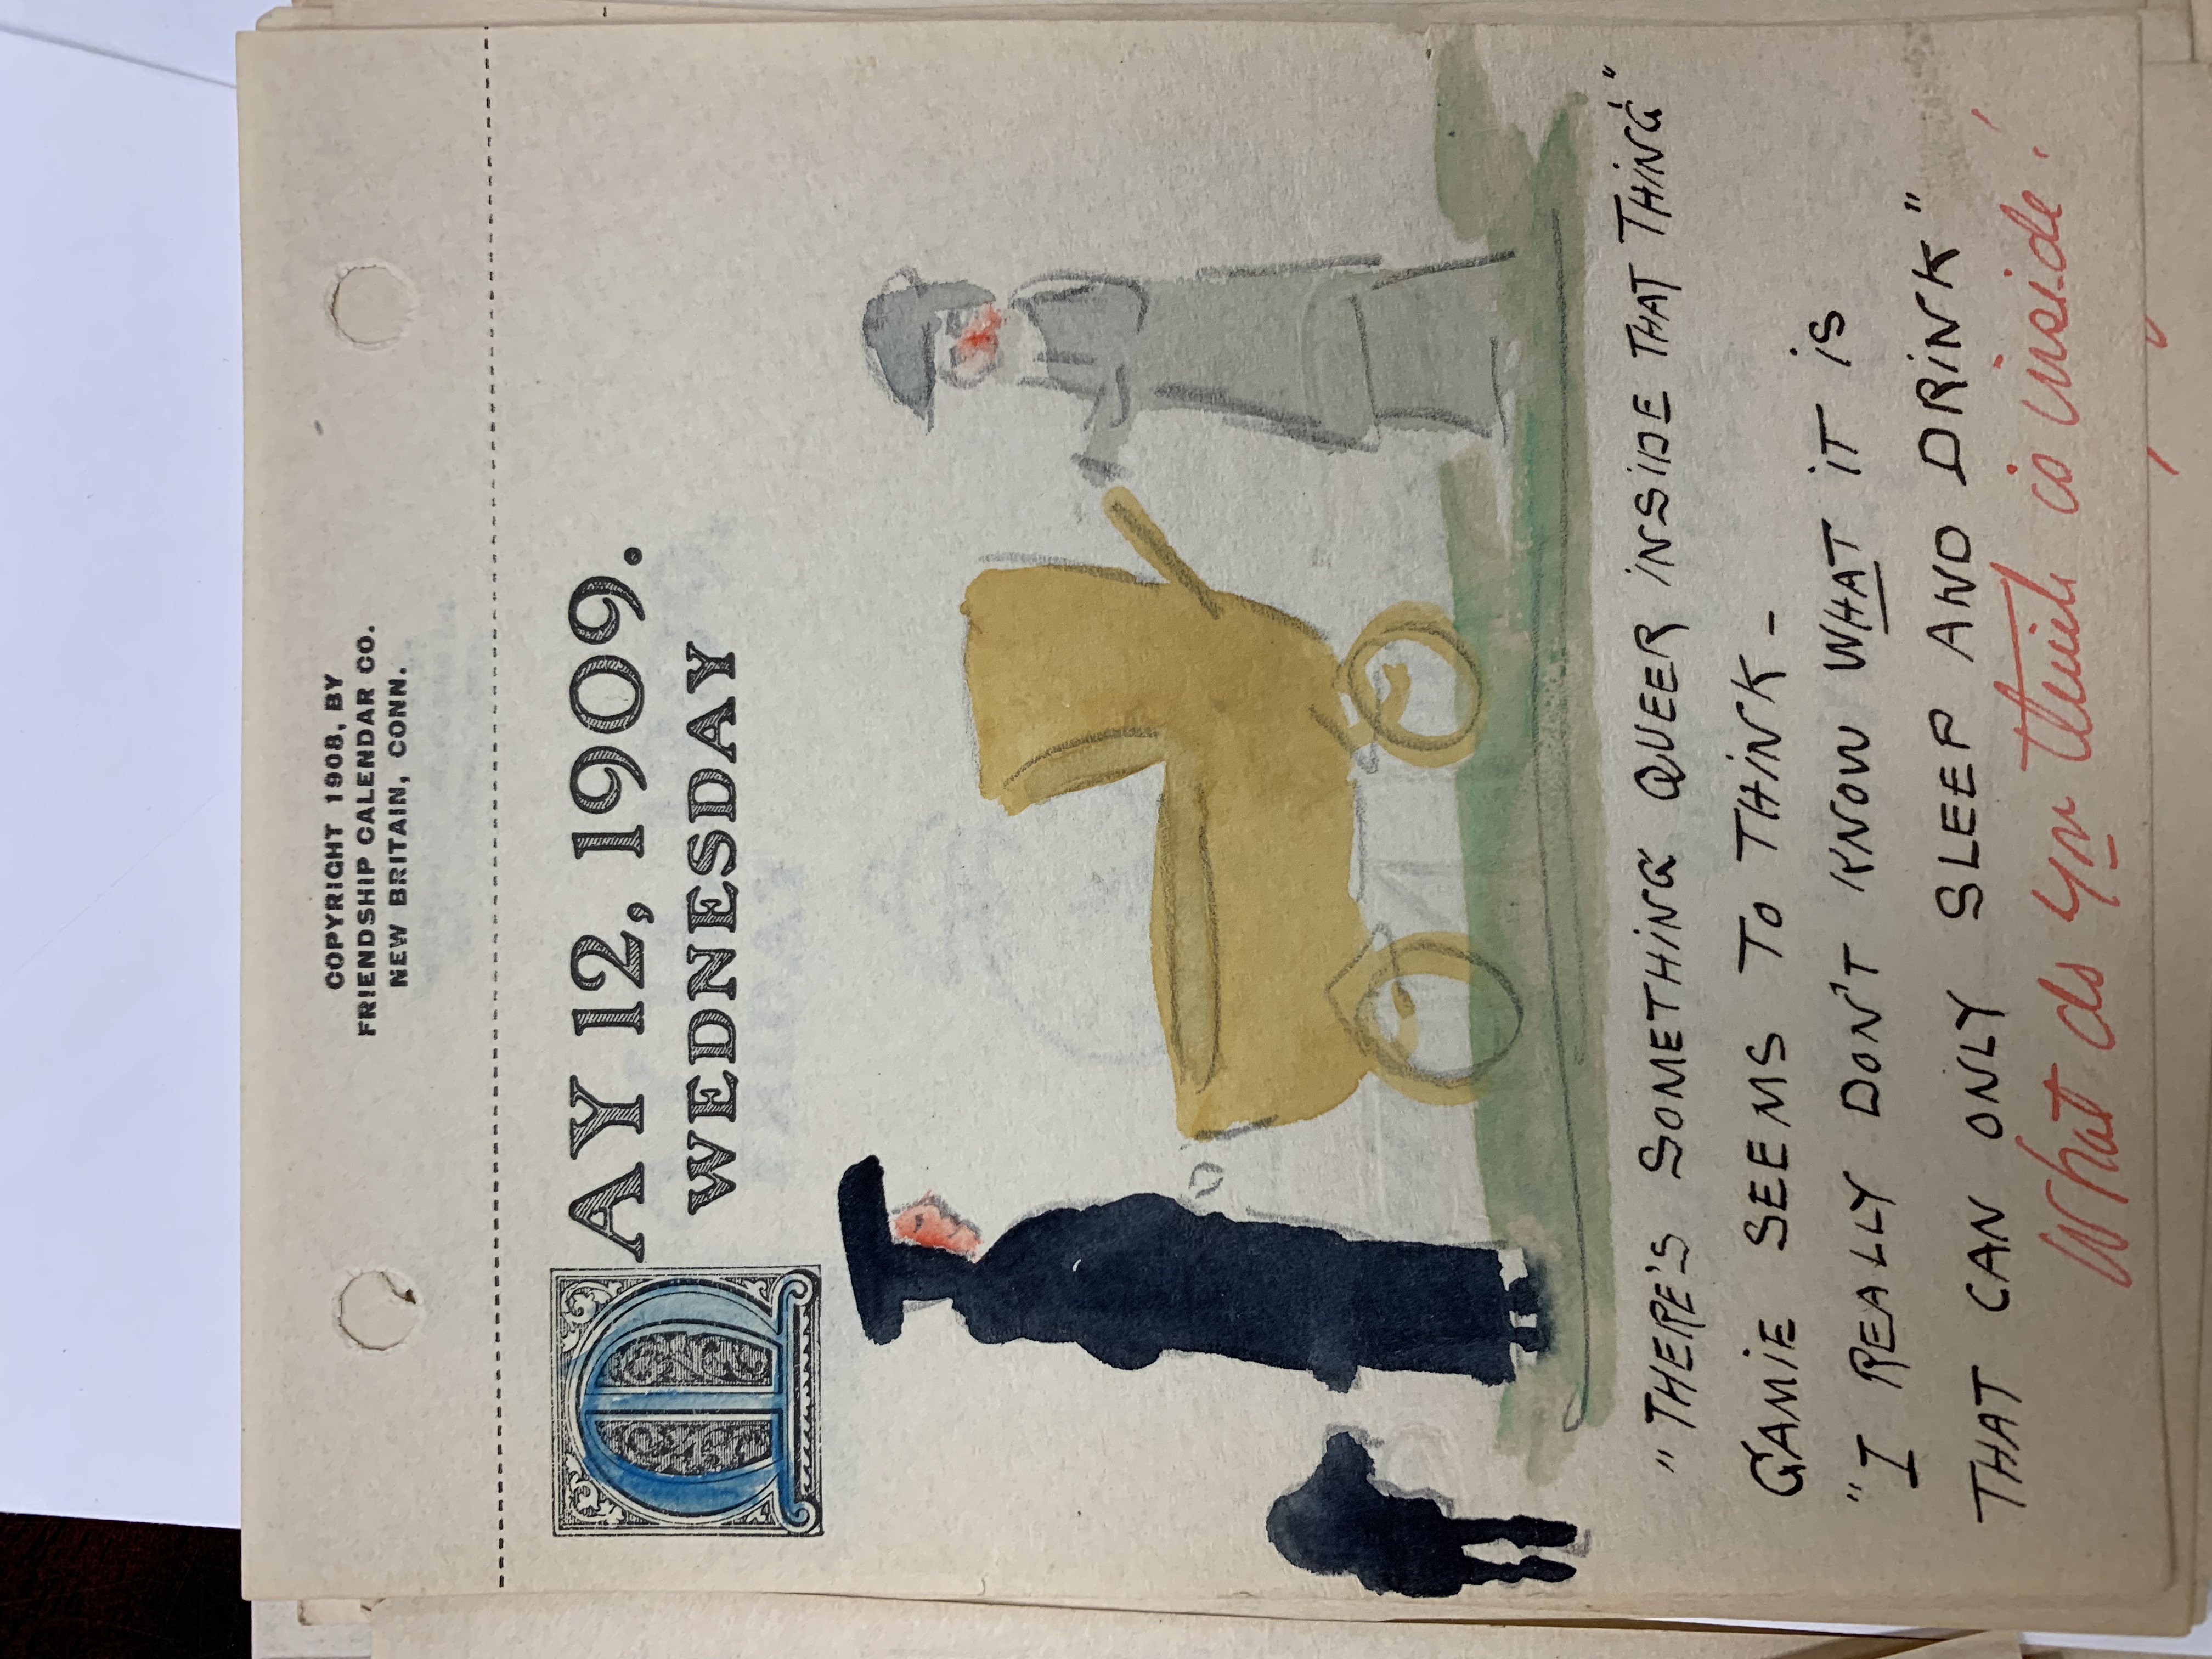 COPYRIGHT 1908, BY
FRIENDSHIP CALENDAR CO.
NEW BRITAIN, CONN.
MAY 12, 1909.
WEDNESDAY
"THERE'S SOMETHING QUEER INSIDE THAT THING"
GAMIE SEEMS TO THINK -
"I REALLY DON'T KNOW WHAT IT IS
THAT CAN ONLY SLEEP AND DRINK"
What do you think is inside!